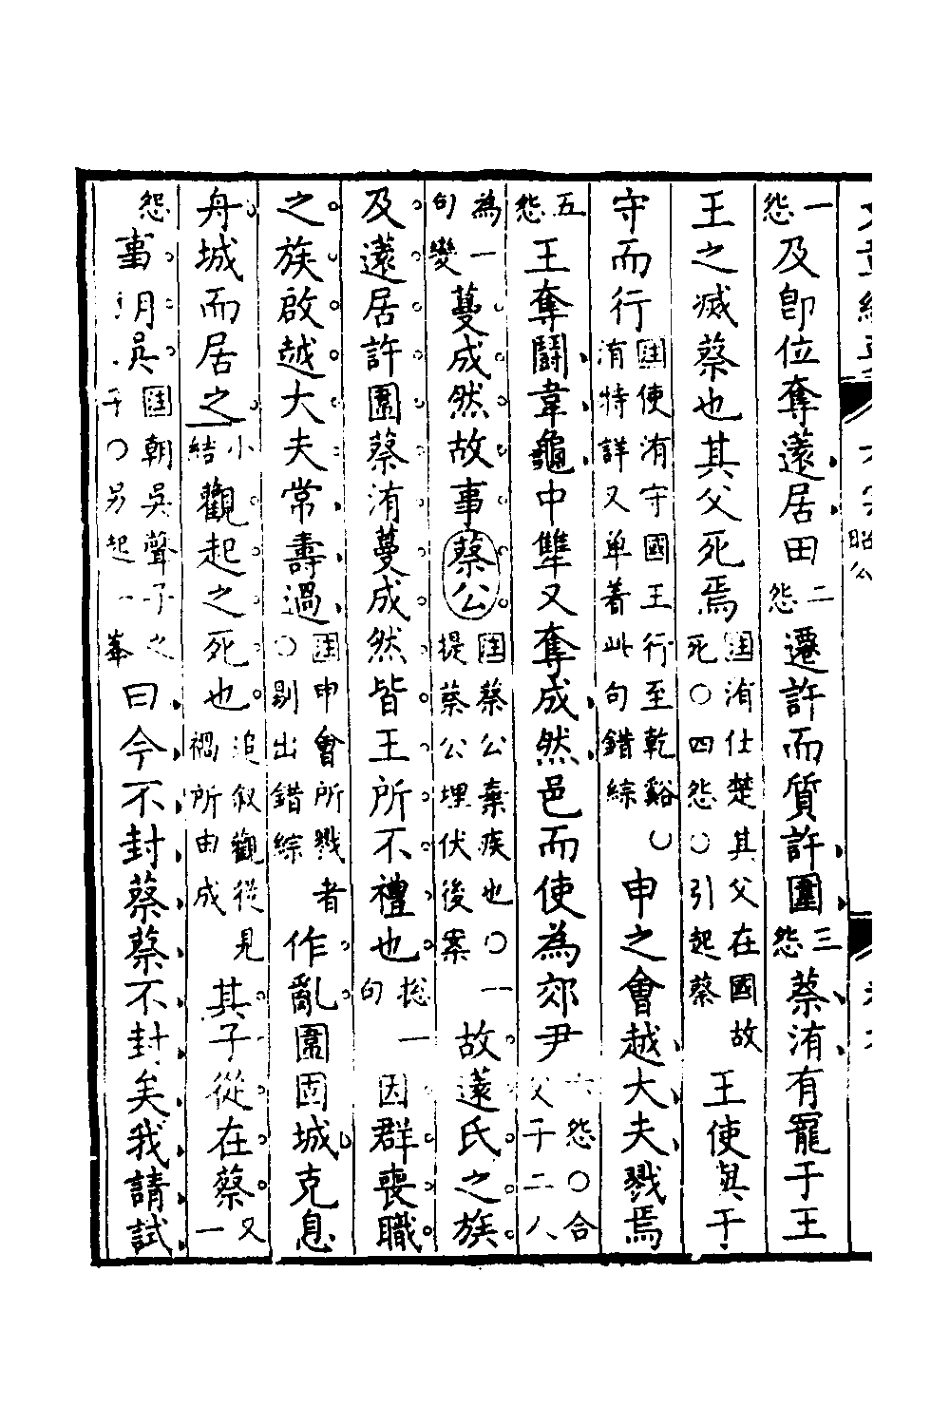 昭公
一怨及即位奪薳居田二怨遷許而質許圍三怨蔡洧有寵于王
王之滅蔡也其父死焉註洧仕楚其父在國故死〇四怨〇引起蔡王使與于
守而行註使洧守國王行至乾谿〇洧特詳又单着此句錯綜申之會越大夫戮焉
五怨王奪鬭韋龜中犫又奪成然邑而使為郊尹六怨〇合父子二人
為一句變蔓成然故事蔡公註蔡公棄疾也〇一提蔡公埋伏後案故薳氏之族
及薳居許圍蔡洧蔓成然皆王所不禮也総一句因群喪職
之族啟越大夫常壽過註申會所戮者〇剔出錯綜作亂圍固城克息
舟城而居之小結觀起之死也追叙觀從見禍所由成其子從在蔡又一
怨事朝吳註朝吳聲子之子〇另起一峯曰今不封蔡蔡不封矣我請試